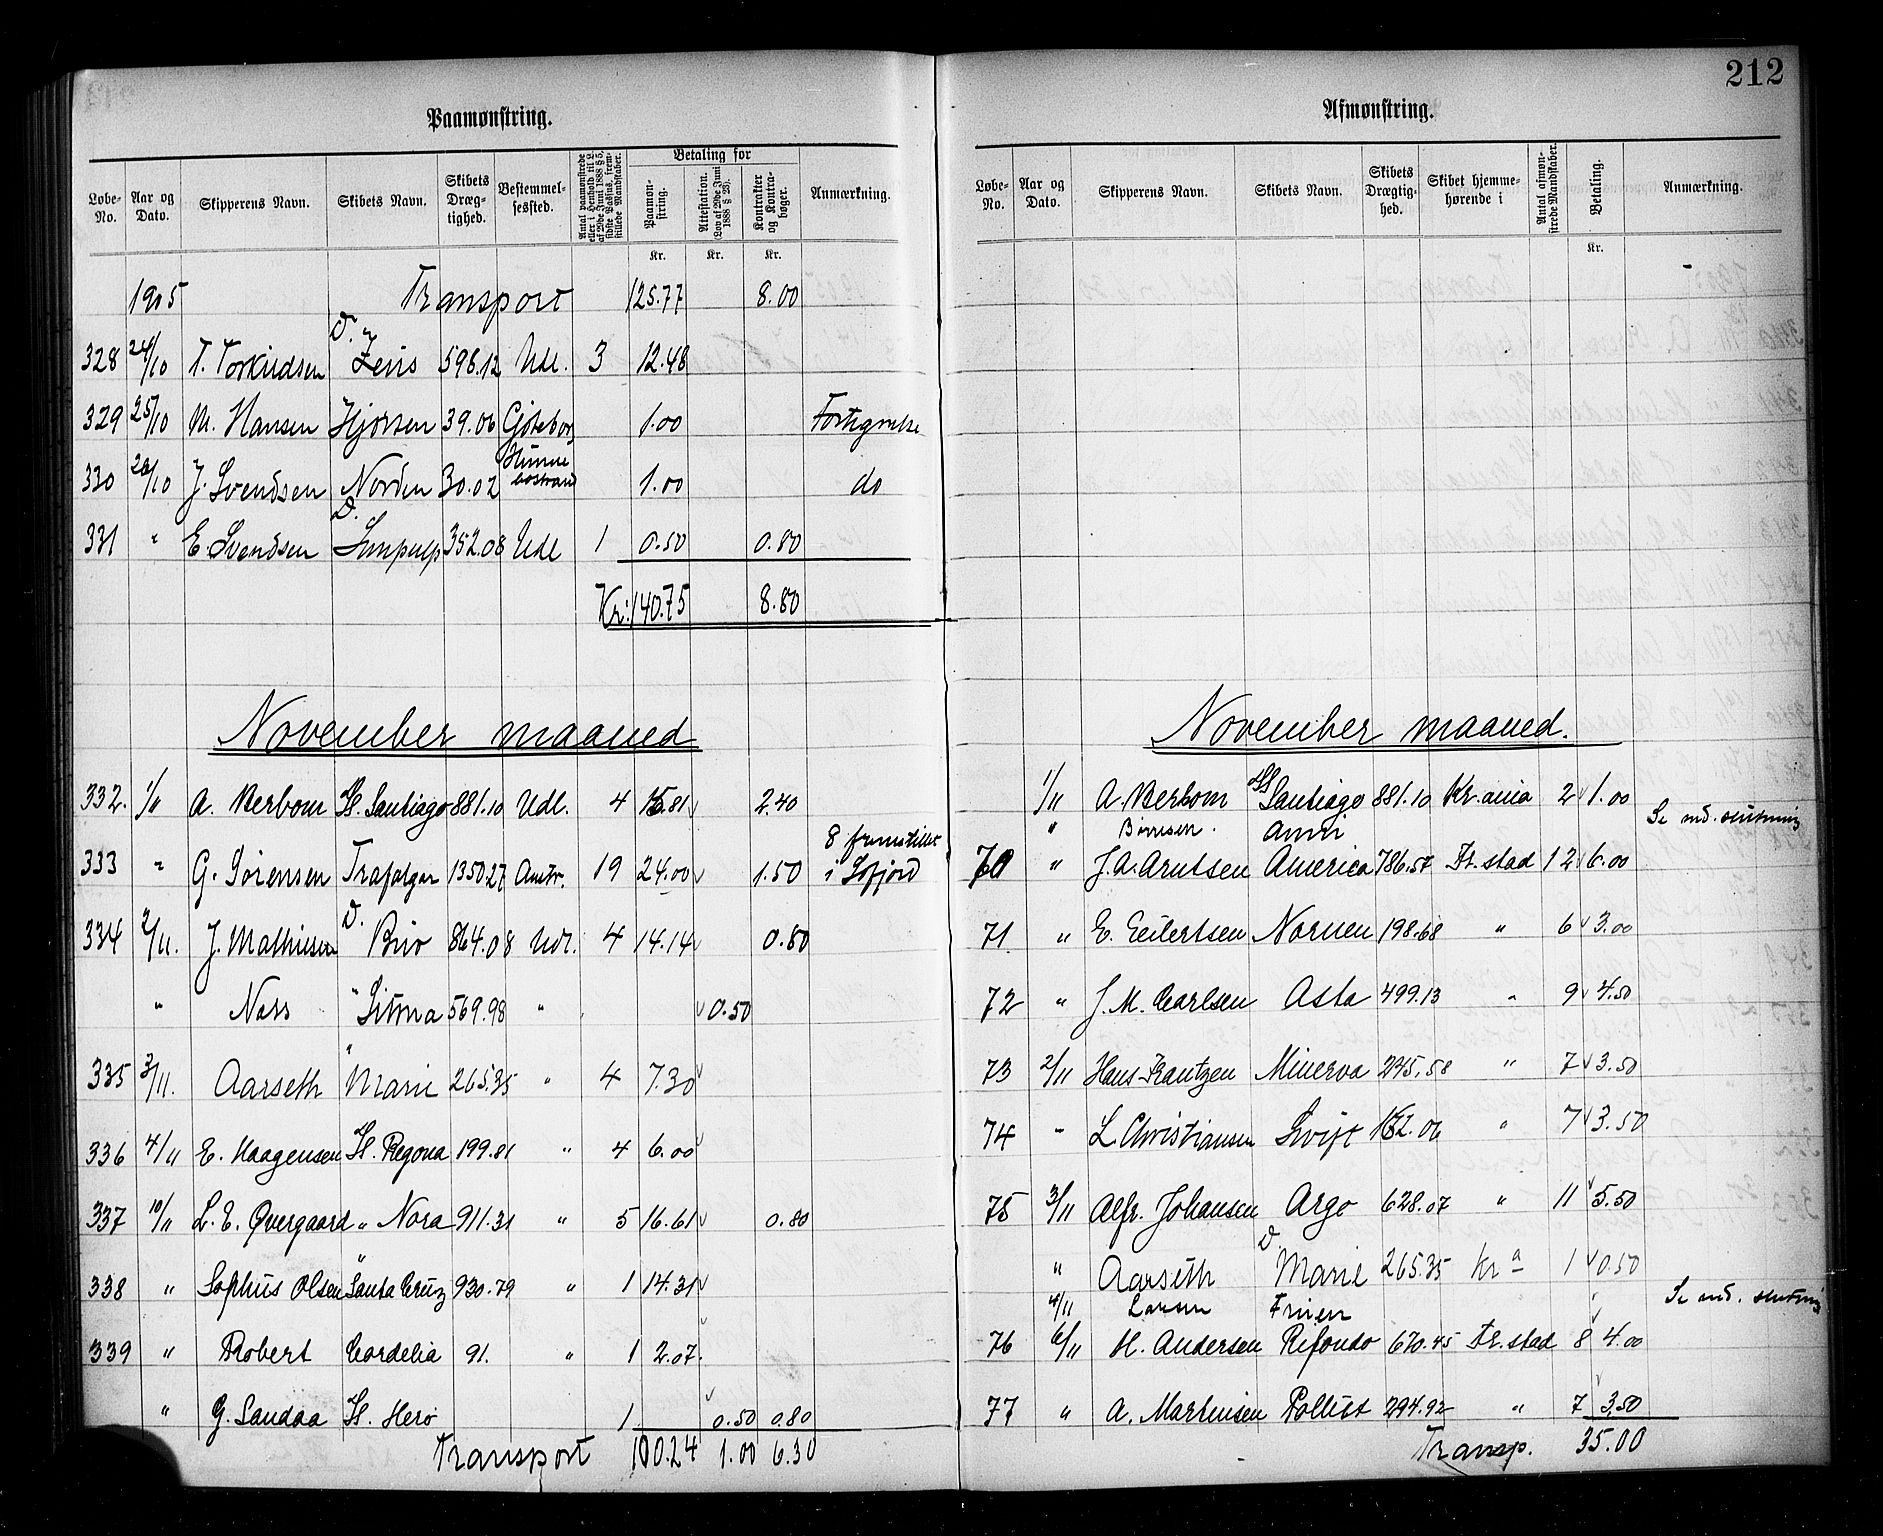 212
Paamønstring.
Løbe-No. Aar og Dato. Skipperens Navn. Skibets Navn. Skibets Dræg-tighed. Bestemmel-sessted. Antal paamønstrede eller i Henhold til L. af 29de Juni 1888 § 5, sidste Passus, frem-stillede Mandskaber. Betaling for Paamøn-string. Attestation. (Lov af 29de Juni 1888 § 23). Kontrakter og Kontra-bøger. Anmærkning.
Kr. Kr. Kr.
1905 Transport 125.77 8.00
328 24/10 T. Torkildsen D. Zeus 596.12 Udl. 3 12.48
329 25/10 M. Hansen Hjorten 39.06 Gøteborg 1.00
330 J. Svendsen Norden 30.02 Hunnebostrand 1.00 do
331 " E. Svendsen D. 352.08 Udl 1 0.50 0.80
Kr: 140.75 8.80
November maaned
332. 1/11 A. Berbom SS. Santiago 881.10 Udl. 4 15.81 2.40
333 " G. Sørensen Trafalgar 1350.27 Austr. 19 24.00 1.50 8 fremstillet i
334 2/11. J. Mathiesen D. Bris 864.08 Udl. 4 14.14 0.80
" Nass " Sitona 569.98 " 0.50
335 3/11. Aarseth " Marie 265.35 " 4 7.30
336 4/11 E. Haagensen SS. Regona 199.81 " 4 6.00
337 10/11 L. E. Qvergaard " Nora 911.31 " 5 16.61 0.80
338 " Sophus Olsen " Santa Cruz 930.79 " 1 14.31
339 " Robert Cordelia 91. " 1 2.07.
" G. Sandaa SS. Hero 1 0.50 0.80
Transport 100.24 1.00 6.30
Afmønstring.
Løbe-No. Aar og Dato. Skipperens Navn. Skibets Navn. Skibets Drægtig-hed. Skibet hjemme-hørende i Antal afmøn-strede Mandskaber. Betaling. Anmærkning.
Kr.
November maaned.
1/11 A. Berbom SS Santiago 881.10 Kr.ania 2 1.00
" Børresen. Anni Se md. slutning
70 " J. A. Arntsen America 786.57 Fr.stad 12 6.00
71 " E. Eilertsen Nornen 198.68 " 6 3.00
72 " J. M. Carlsen Asta 499.13 " 9 4.50
73 2/11 Hans Frantzen Minerva 295.58 " 7 3.50
74 " L. Christiansen Svift 162.06 " 7 3.50
75 3/11 Alfr. Johansen Argo 628.07 " 11 5.50
" Aarseth D. Marie 265.35 Kra 1 0.50
4/11 Larsen Se md. slutning
76 6/11 H. Andersen Rifondo 670.45 Fr.stad 8 4.00
77 " A. Martinsen Pollux 294.92 " 7 3.50
Transp. 35.00